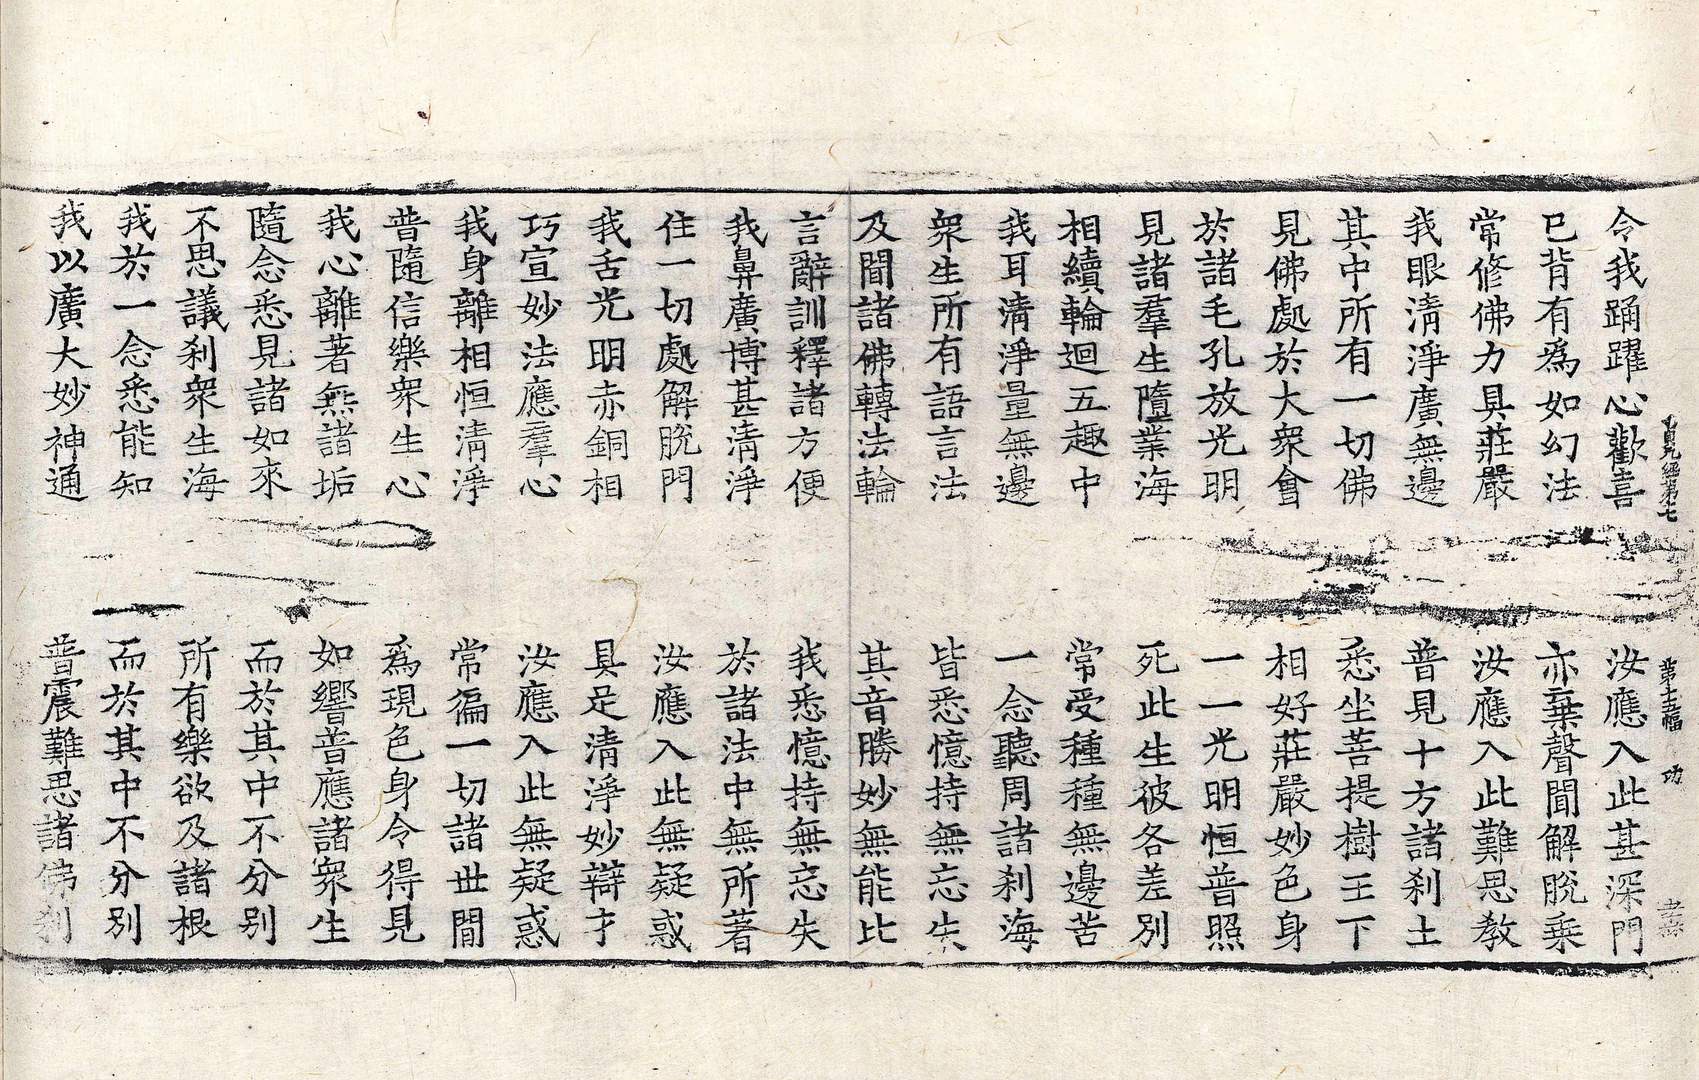 令我踊躍心歡喜　汝應入此甚深門
已背有爲如幻法　亦棄聲聞解脫乘
常修佛力具莊嚴　汝應入此難思教
我眼淸淨廣無邊　普見十方諸刹土
其中所有一切佛　悉坐菩提樹王下
見佛處於大衆會　相好莊嚴妙色身
於諸毛孔放光明　一一光明恒普照
見諸羣生墮業海　死此生彼各差別
相續輪迴五趣中　常受種種無邊苦
我耳淸淨量無邊　一念聽周諸刹海
衆生所有語言法　皆悉憶持無忘失
及聞諸佛轉法輪　其音勝妙無能比
言辭訓釋諸方便　我悉憶持無忘失
我鼻廣博甚淸淨　於諸法中無所著
住一切處解脫門　汝應入此無疑惑
我舌光明赤銅相　具足淸淨妙辯才
巧宣妙法應羣心　汝應入此無疑惑
我身離相恒淸淨　常徧一切諸世間
普隨信樂衆生心　爲現色身令得見
我心離著無諸垢　如響普應諸衆生
隨念悉見諸如來　而於其中不分別
不思議刹衆生海　所有樂欲及諸根
我於一念悉能知　而於其中不分別
我以廣大妙神通　普震難思諸佛刹
經第七　第十五幅　功